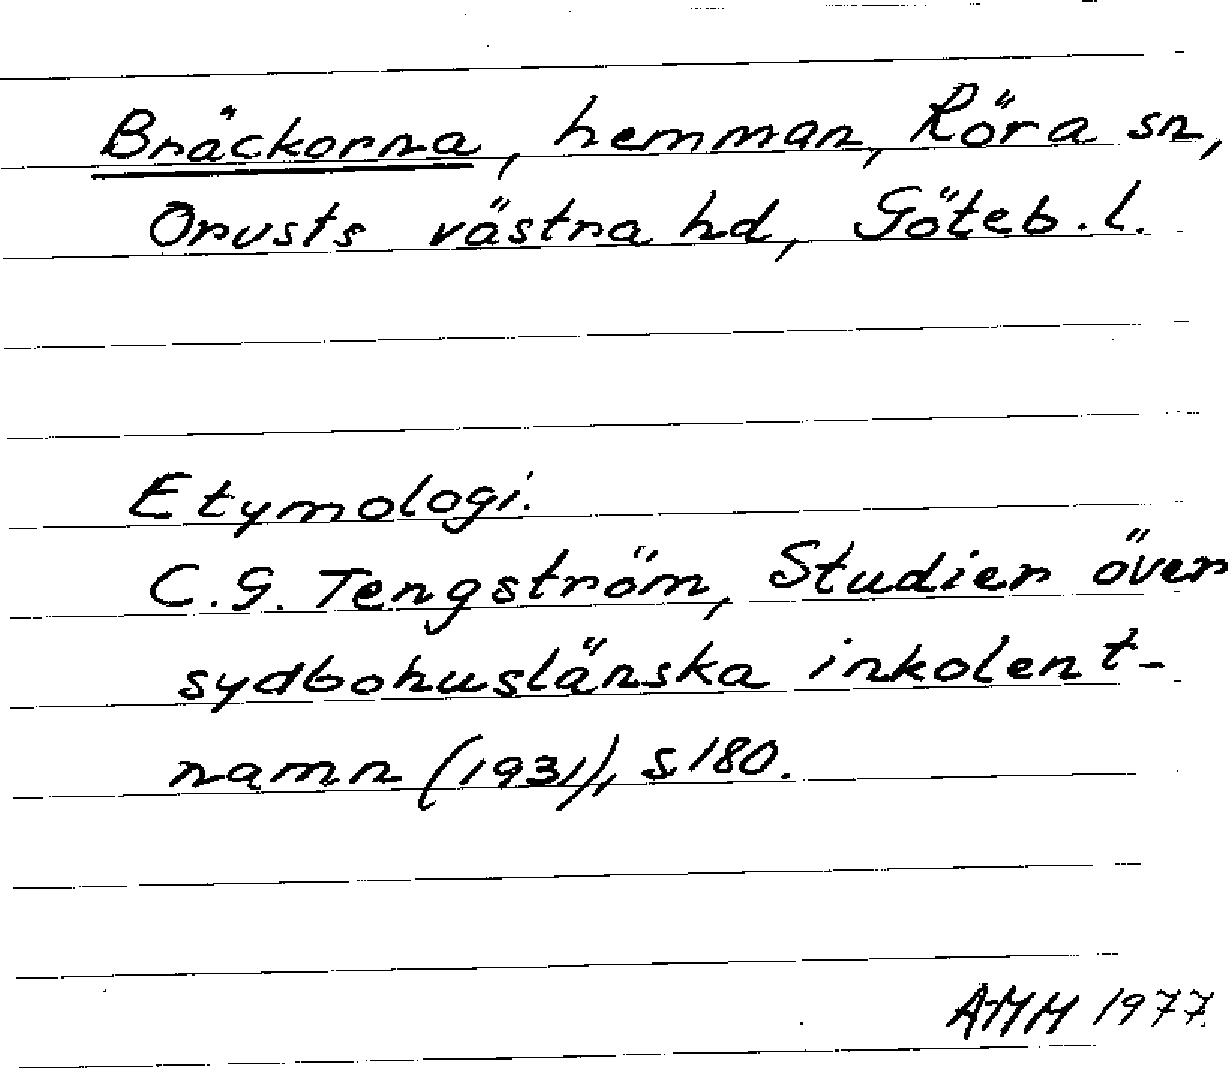 Bräckorna, hemman, Röra sn,
Orusts västra hd, Göteb.l.
Etymologi.
C.G. Tengström, Studier över
sydbohuslänska inkolent-
namn (1931), s 180.
AMH 1977